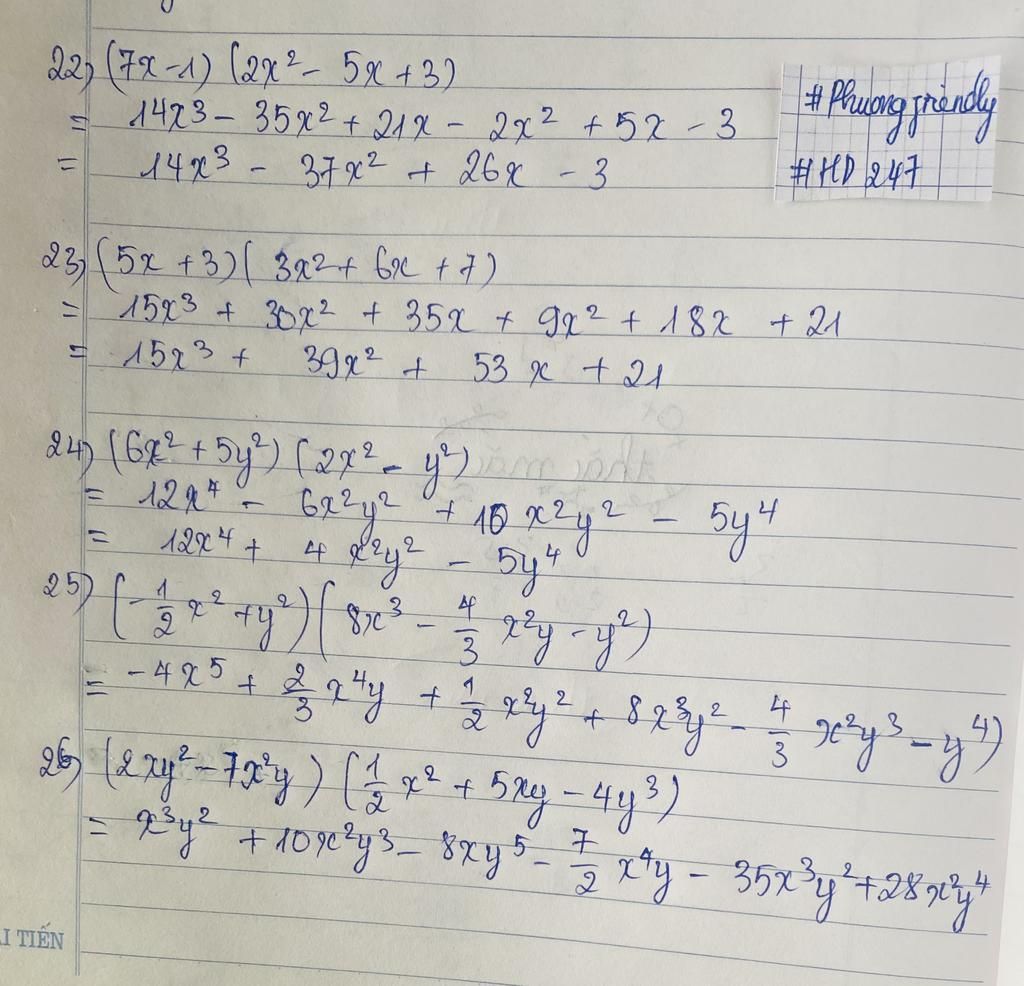 22) (7x - 1) (2x² - 5x + 3)
= 14x³ - 35x² + 21x - 2x² + 5x - 3
= 14x³ - 37x² + 26x - 3
#Phuongfriendly
#HD 247
23) (5x + 3) (3x² + 6x + 7)
= 15x³ + 30x² + 35x + 9x² + 18x + 21
= 15x³ + 39x² + 53x + 21
24) (6x² + 5y²) (2x² - y²)
= 12x⁴ - 6x²y² + 10x²y² - 5y⁴
= 12x⁴ + 4x²y² - 5y⁴
25) (-1/2 x² + y²) (8x³ - 4/3 x²y - y²)
= -4x⁵ + 2/3 x⁴y + 1/2 x²y² + 8x³y² - 4/3 x²y³ - y⁴)
26) (2xy² - 7x²y) (1/2 x² + 5xy - 4y³)
= x³y² + 10x²y³ - 8xy⁵ - 7/2 x⁴y - 35x³y² + 28x²y⁴
I TIẾN